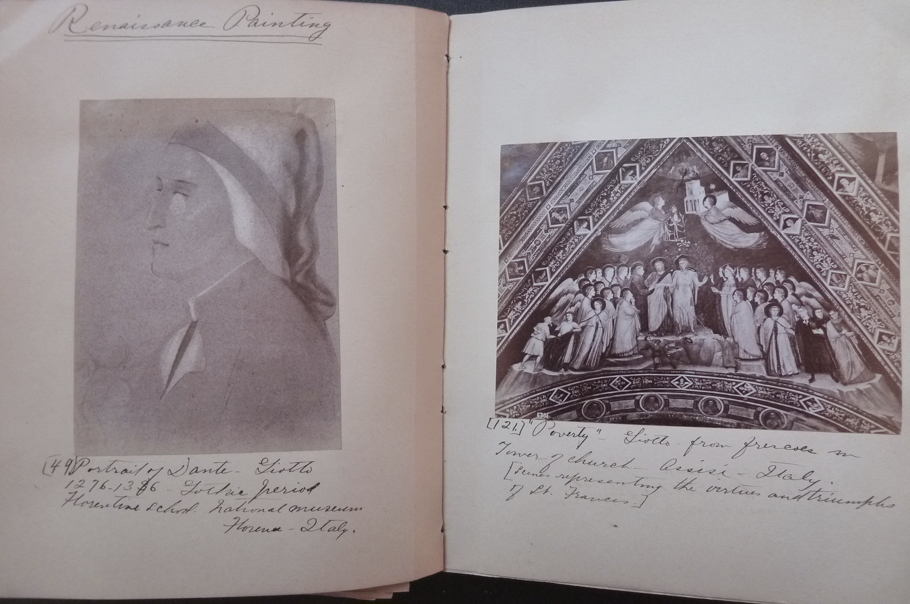 Renaissance Painting
[49] Portrait of Dante - Giotto
1276-1336 - Gothic period
Florentine School National museum
Florence - Italy.
[121] "Poverty" - Giotto - from frescoes in
Tower of church - Assisi - Italy.
[Scenes representing the virtues and triumphs
of St. Francis.]